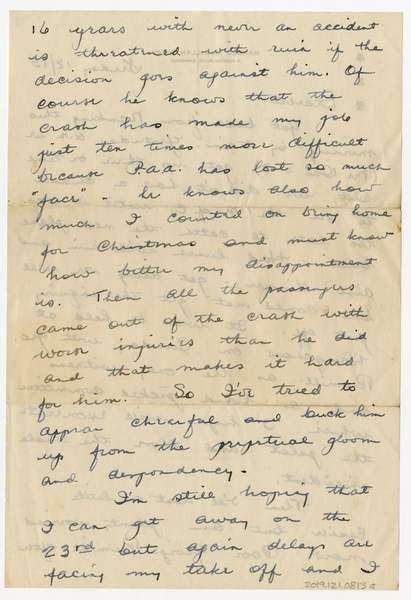 16 years with never an accident
is threatened with ruin if the
decision goes against him. Of
course he knows that the
crash has made my job
just ten times more difficult
because P.a.a. has lost so much
"face" - he knows also how
much I counted on being home
for Christmas and must know
how bitter my disappointment
is. Then all the passengers
came out of the crash with
worse injuries than he did
and that makes it hard
for him. So I've tried to
appear cheerful and buck him
up from the perpetual gloom
and despondency.
I'm still hoping that
I can get away on the
23rd but again delays are
facing my take off and I
2019.121.0813